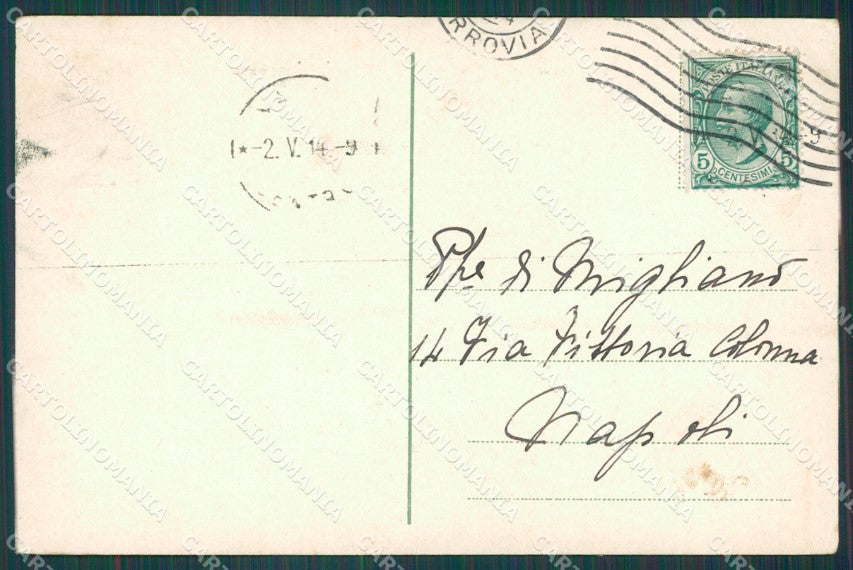 RROVIA
POSTE ITALIANE
5 5
CENTESIMI
-2. V. 14 -9
Ppe di Migliano
14 Via Vittoria Colonna
Napoli
CARTOLINOMANIA